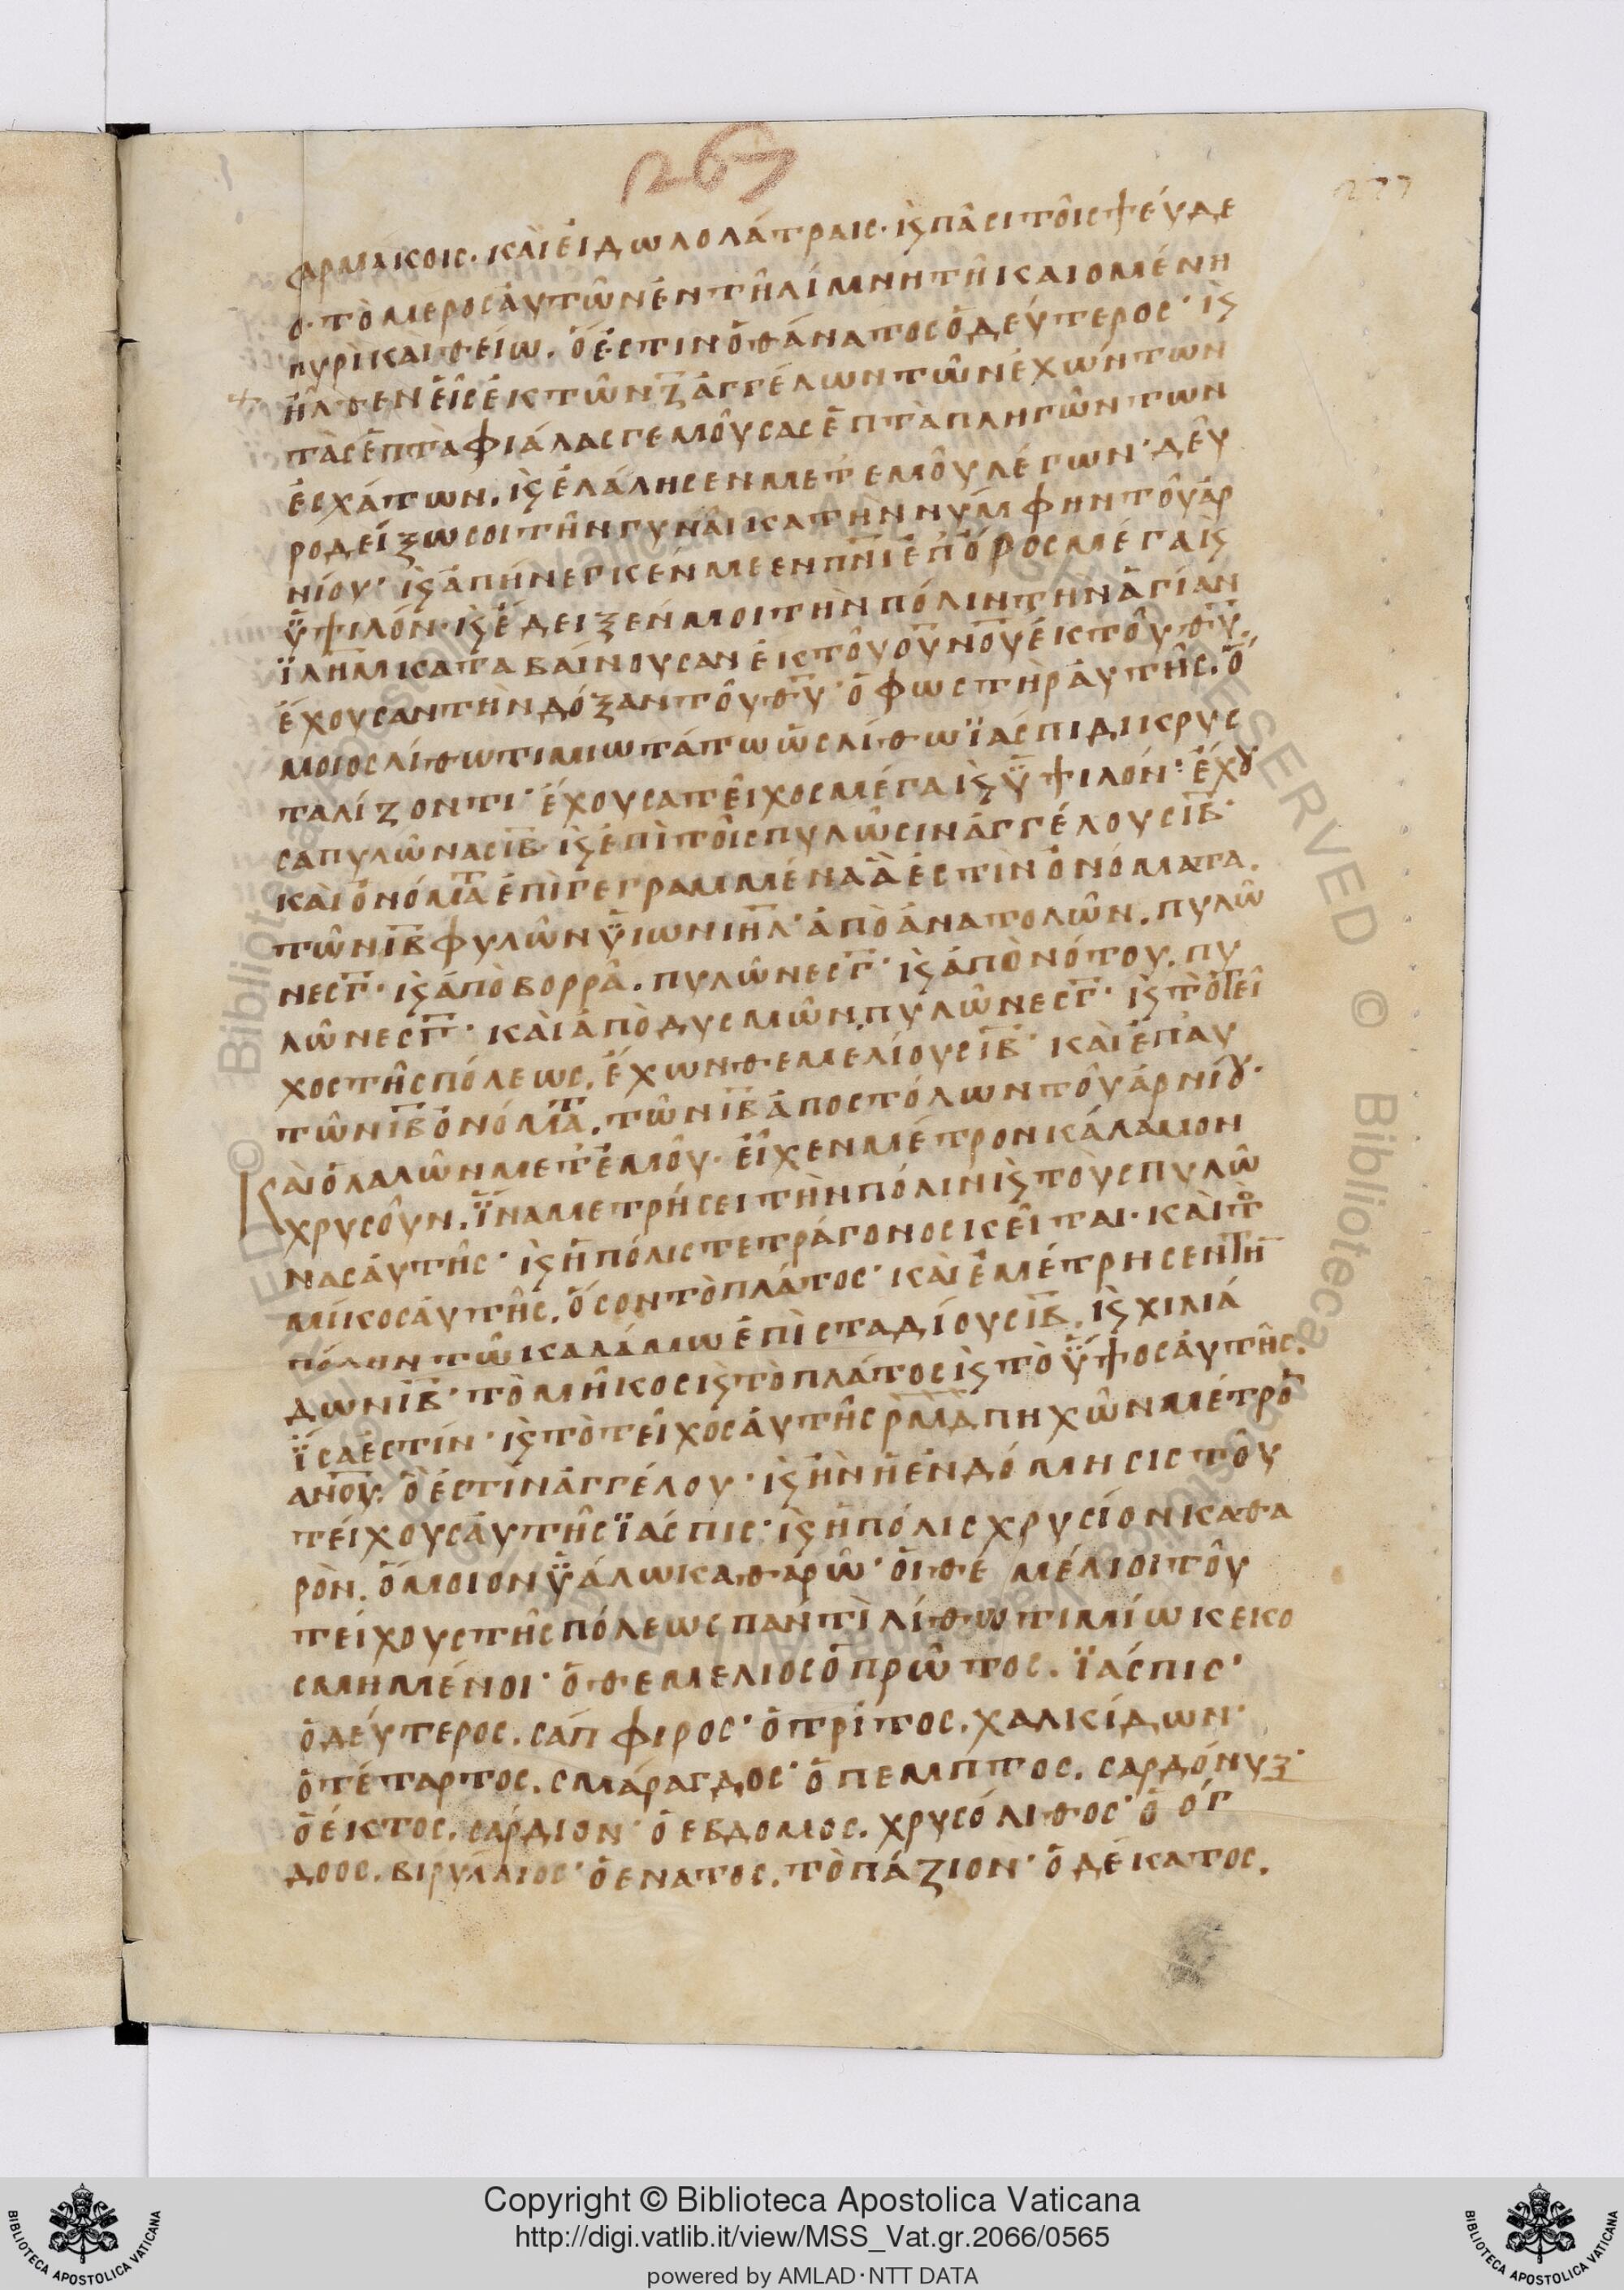 267
277
φαρμάκοις. κὰι ἐιδωλολάτραις. ϗ πᾶσι τοῖς ψέυδε
σ. τὸ μεροσ ἀυτῶν ἐν τῇ λίμνη τῇ καιομένη
πυρὶ και θείω. ὅ ἐστιν ὁ θάνατοσ ὁ δεύτερος· ϗ
ἦλθεν εἷς ἐκ τῶν ζ ἀγγέλων τῶν ἐχώντων
τὰς ἑπτὰ φιάλας γεμοῦσας ἑπτὰ πληγῶν των
ἐσχάτων. ϗ ἐλάλησεν μετ εμοῦ λέγων· δεῦ
ρο δείξω σοι τὴν γυναῖκα τὴν νύμφην τοῦ ἀρ
νίου· ϗ ἀπήνεγκέν με εν πνι ἐπ ὄρος μέγα ϗ
ὑψιλόν· ϗ ἔδειξέν μοι τὴν πόλιν την ἁγίαν
ϊλημ καταβαίνουσαν ἐκ τοῦ ουνου ἐκ τοῦ θυ.
ἔχουσαν τὴν δόξαν τοῦ θυ· ὁ φωστὴρ ἀυτῆς. ὅ
μοιος λίθω τιμιωτάτω ὡς λίθω ϊάσπιδι κρυσ
ταλίζοντι· ἔχουσα τεῖχος μέγα ϗ ὑψιλόν· ἔχου
σα πυλῶνας ιβ· ϗ ἐπὶ τοῖς πυλῶσιν ἀγγέλους ιβ·
κὰι ὀνόματα ἐπιγεγραμμένα ἅ ἐστὶν ὀνόματα.
τῶν ιβ φυλῶν ὑιων ιηλ· ἀπὸ ἀνατολῶν. πυλῶ
νες γ· ϗ ἀπὸ βορρᾶ. πυλῶνες γ· ϗ ἀπὸ νότου. πυ
λῶνες γ· κὰι ἀπὸ δυσμῶν. πυλῶνες γ· ϗ τὸ τεῖ
χος τῆς πόλεως. ἔχων θεμελίους ιβ· κὰι ἐπ αυ
τῶν ιβ ὀνόματα. τῶν ιβ ἀποστόλων τοῦ ἀρνίου·
Κὰι ὁ λαλῶν μετ ἐμοῦ· εἶχεν μέτρον κάλαμον
χρυσοῦν. ἵνα μετρήσει τὴν πόλιν ϗ τοὺς πυλῶ
νας ἀυτῆς· ϗ ἡ πόλις τετράγονος κεῖται· κὰι τὸ
μίκος ἀυτῆς. ὅσον τὸ πλάτος· κὰι ἐμέτρησεν τὴν
πόλιν τῶ καλάμω ἐπὶ σταδίους ιβ. ϗ χιλιά
δων ιβ· τὸ μῆκος ϗ τὸ πλάτος ϗ τὸ ὕψος ἀυτῆς.
ἴσα ἐστίν· ϗ τὸ τεῖχος ἀυτῆς ρμδ πηχῶν μέτρον
ανου. ὅ ἐστὶν ἀγγέλου· ϗ ἦν ἡ ἐνδόμησις τοῦ
τείχους ἀυτῆς ϊάσπις· ϗ ἡ πόλις χρυσίον καθα
ρὸν. ὅμοιον ὑάλω καθαρῶ· ὁι θέ μέλιοι τοῦ
τείχους τῆς πόλεως παντὶ λίθω τιμίω κεκο
σμημένοι· ὁ θεμελιος ὁ πρῶτος. ϊάσπις·
ὁ δεύτερος. σάπφιρος· ὁ τρίτος. χαλκίδων·
ὁ τέταρτος. σμάραγδος· ὁ πεμπτος. σαρδόνυξ·
ὁ ἕκτος. σάρδιον· ὁ εβδομος. χρυσόλιθος· ὁ ὄγ
δοος. βιρύλλιος· ὁ ενατος. τὸπάζιον· ὁ δέκατος.
Copyright © Biblioteca Apostolica Vaticana
http://digi.vatlib.it/view/MSS_Vat.gr.2066/0565
powered by AMLAD·NTT DATA
BIBLIOTECA APOSTOLICA VATICANA
BIBLIOTECA APOSTOLICA VATICANA